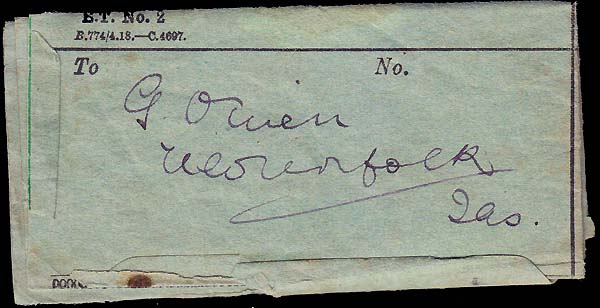 E.T. No. 2
B.774/4.18.—C.4697.
To No.
G. Owen
New Norfolk
Tas.